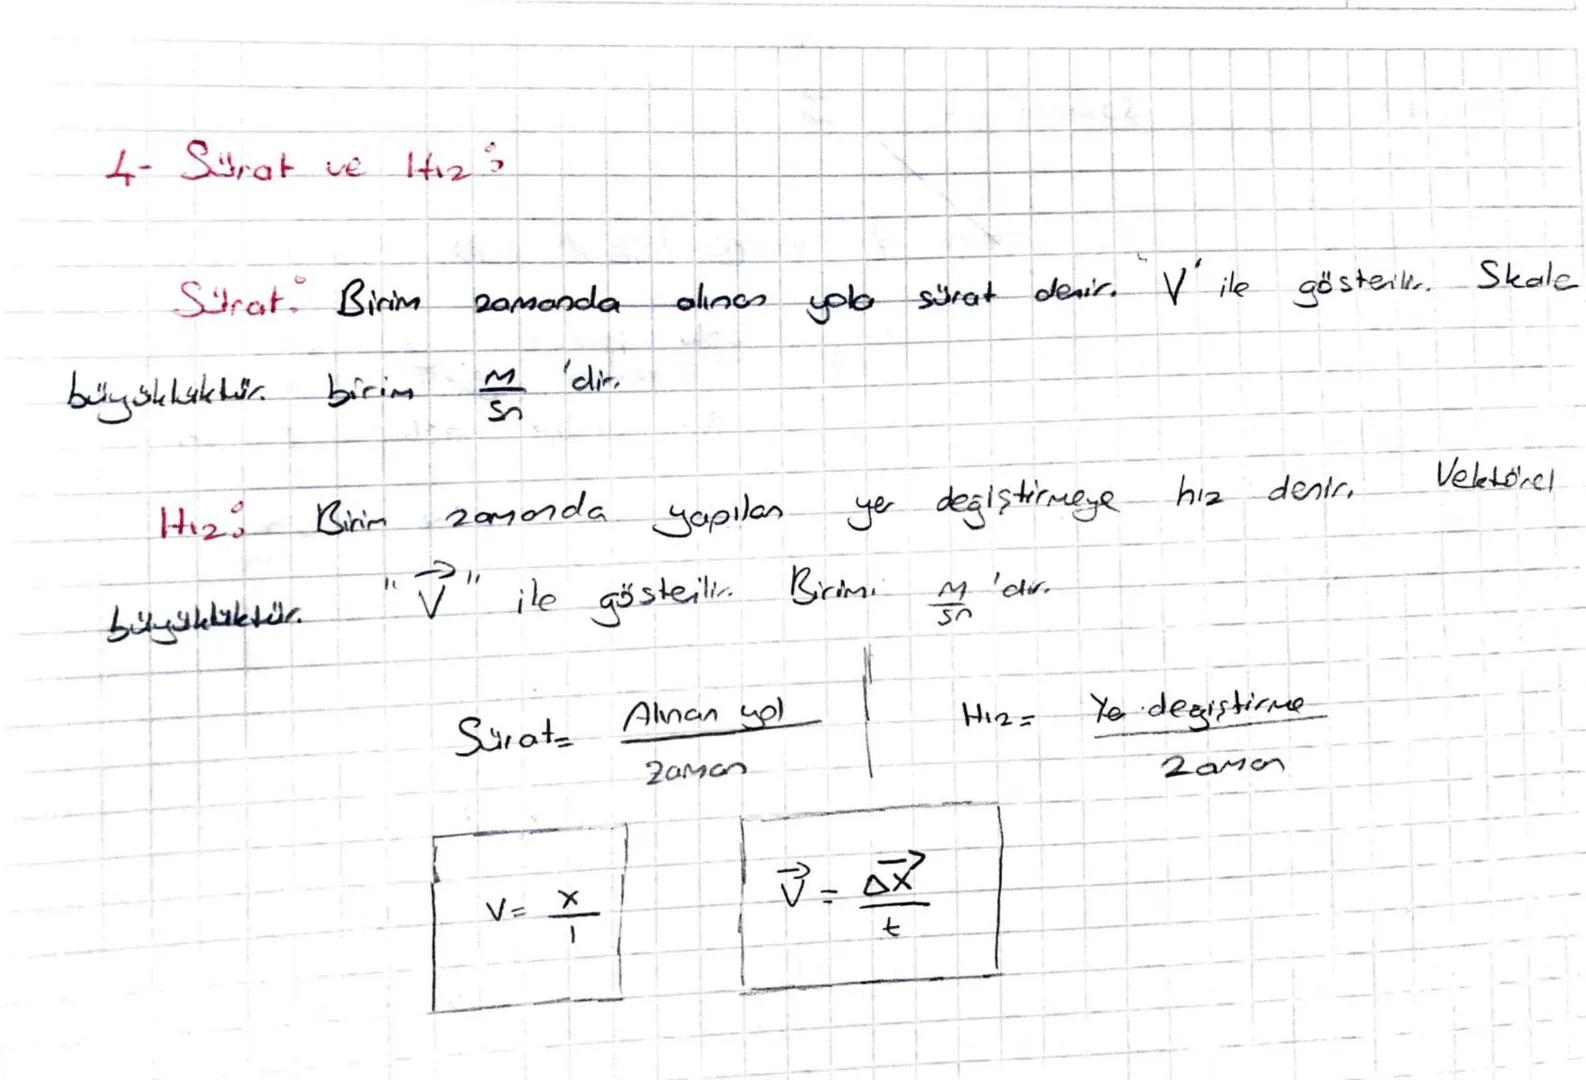 4- Sürat ve Hız:
Sürat: Birim zamanda alınan yola sürat denir. "V" ile gösterilir. Skale
büyüklüktür. birim M/sn 'dir.
Hız: Birim zamanda yapılan yer değiştirmeye hız denir. Vektörel
büyüklüktür. "V⃗" ile gösterilir. Birimi M/sn 'dir.
Sürat = Alınan yol / Zaman | Hız = Ye değiştirme / Zaman
V = x / 1
V⃗ = Δx⃗ / t